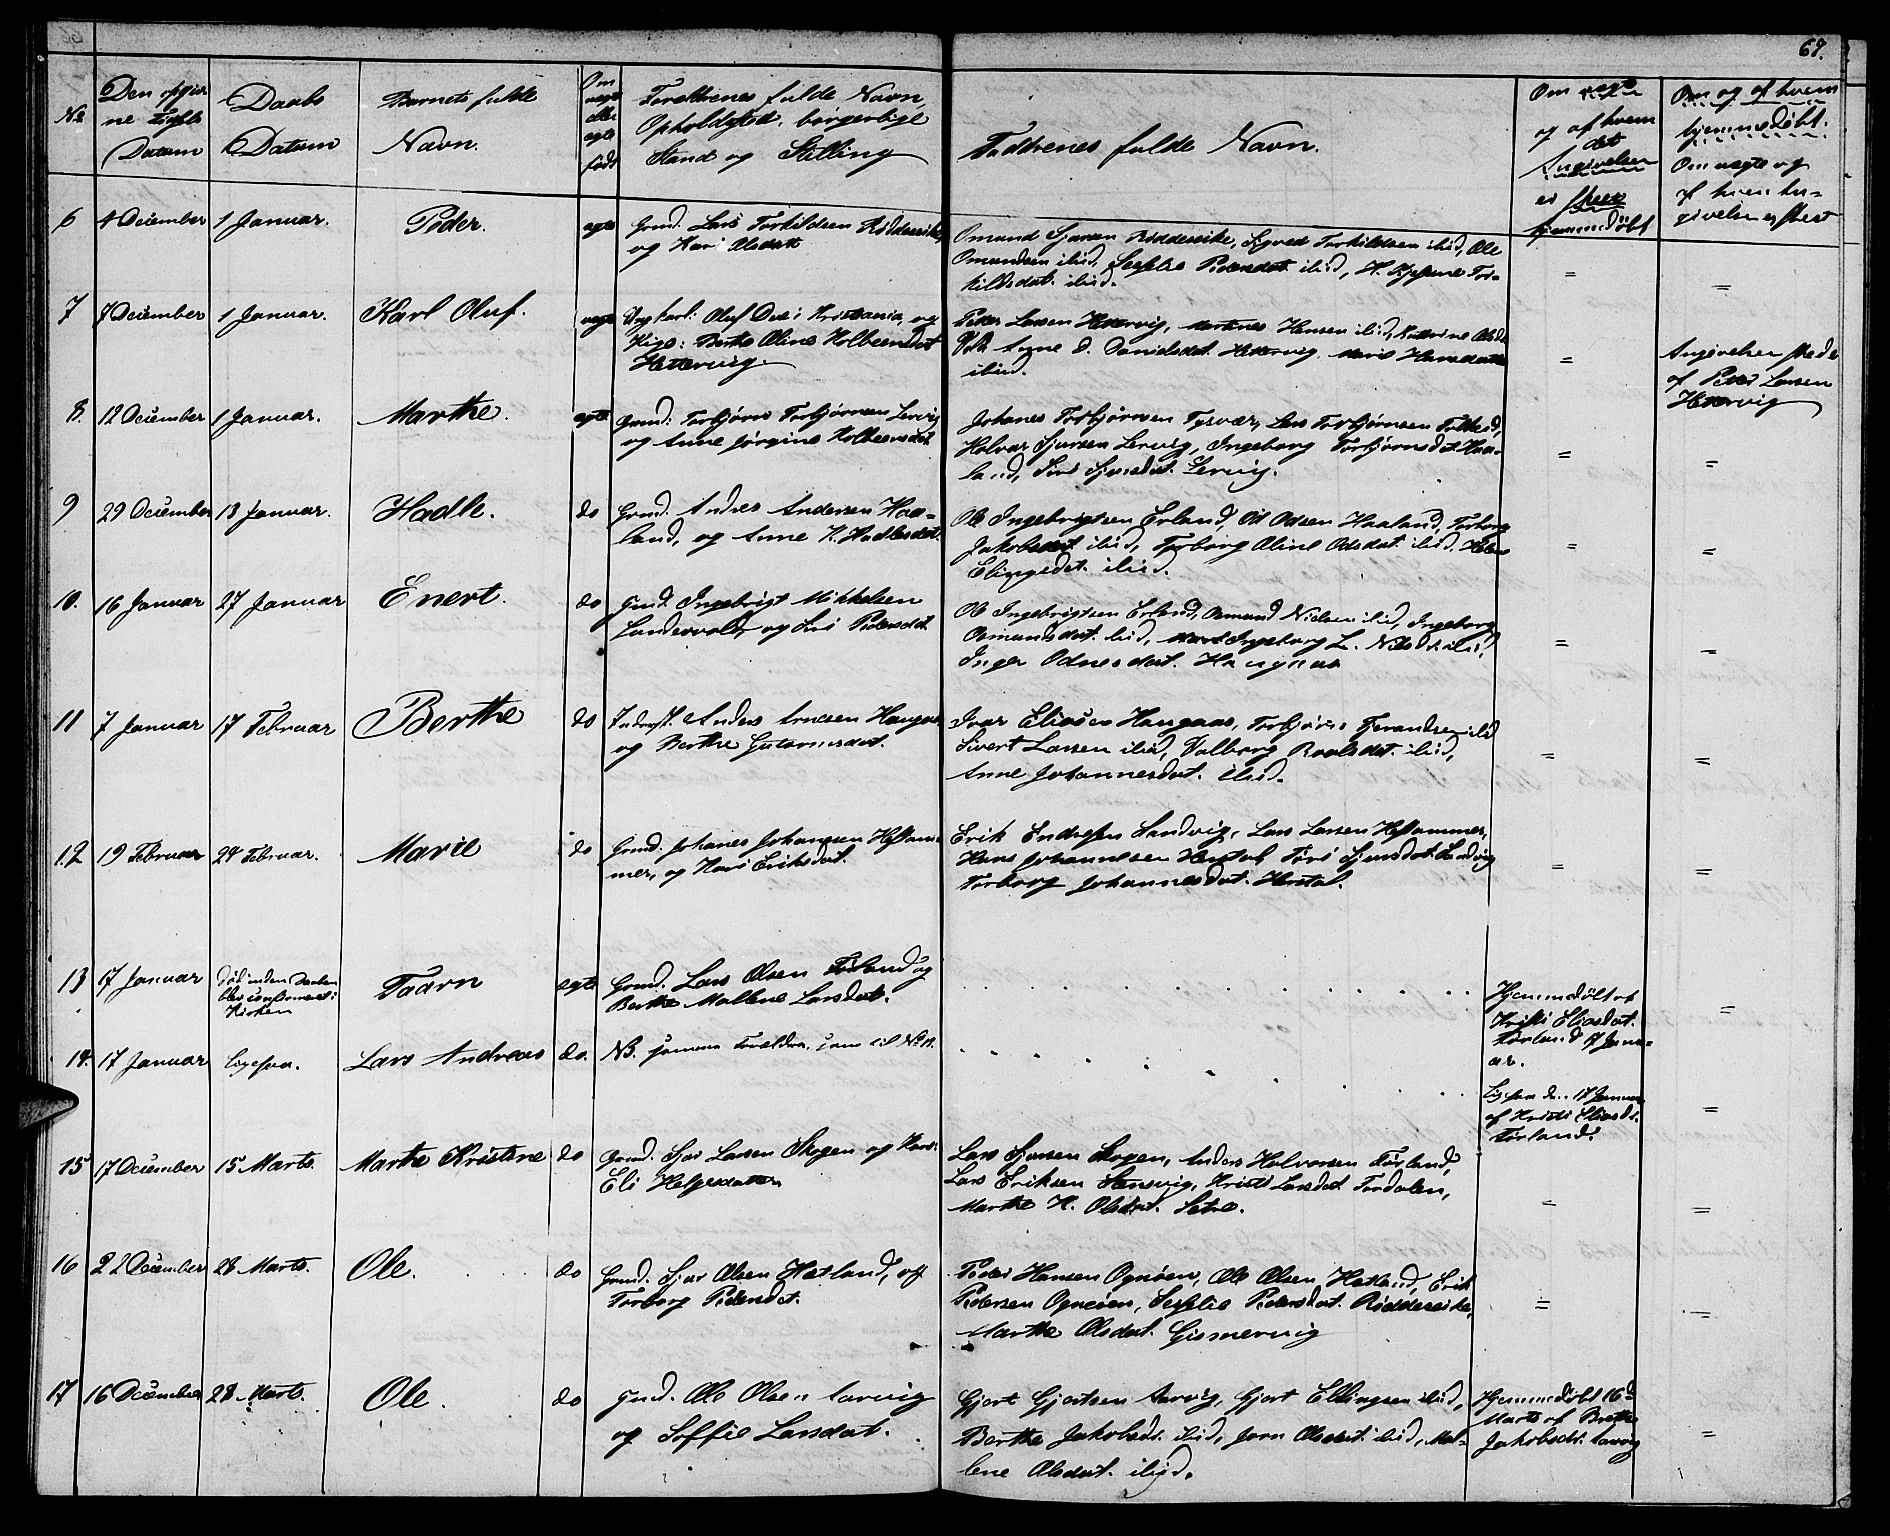 67.
No
Den opgiv-
ne Fødsels
Datum
Daabs
Datum
Barnets fulde
Navn.
Om
uægte
eller
ægte
født
Forældrenes fulde Navn,
Opholdsted, borgerlige
Stand og Stilling
Faddrenes fulde Navn.
og af hvem
det
Angivelsen
er skeet
hjemmedøbt
Om og af hvem
hjemmedøbt.
Om uægte og
af hvem An-
givelsen er skeet
6 4 December 1 Januar. Peder. ægte Grmd. Lars Torkildsen Riddersike
og Kari Olsdatt
Omund Sjursen Riddersike, Sjyved Torkildsen ibid, Ole
Omundsen ibid, Sesselie Pedersdat. ibid, Tor-
kildsdat. ibid. = =
7 7 December 1 Januar. Karl Oluf. uægte Ungkarl: Oluf i Kristiania, og
Pige: Berthe Oline Kolbeensdat
Hettervig
Peder Larsen Hettervig, Hansen ibid,
Anne D. Danielsdat. Hettervig, Hansdatter
ibid. =
Angivelsen skede
af Peder Larsen
Hettervig
8. 12 December 1 Januar. Marthe. ægte Grmd: Torbjørn Torbjørnsen Lervig
og Anne Jørgine Kolbeensdat.
Johanes Torbjørnsen Tysvær, Lars Torbjørnsen
Halvar Sjursen Lervig, Ingeborg Torbjørnsdat. Haa-
land, Siri Sjursdat. Lervig. = =
9 29 December 13 Januar. Hadle. do Grmd. Andres Andersen Haa-
land, og Anne K. Hadlesdat.
Ole Ingebrigtsen Erland, Od Odsen Haaland, Torborg
Jakobsdat ibid, Torborg Oline Odsdat. ibid,
Elingsdat. ibid. = =
10. 16 Januar 27 Januar Enert. do Grmd. Ingebrigt Mikkelsen
og Siri Pedersdat
Ole Ingebrigtsen Erland, Osmund Nielsen ibid, Ingeborg
Osmundsdat. ibid, Ingeborg L. Nilsdt. ibid,
Inger Odnesdat. Haugnæs = =
11 7 Januar 17 Februar Berthe do Inderst. Anders Arnesen Haugaas
og Berthe Gutormsdat.
Ivar Eliasen Haugaas, Torbjørn Tjerandsen ibid
Sivert Larsen ibid, Valborg Roalsdat. ibid,
Anne Johannesdat. ibid. = =
12 19 Februar 24 Februar. Marie do Grmd. Johanes Johanesen Hessam-
mer, og Kari Eriksdat.
Erik Endresen Sandvig, Lars Larsen Hessammer,
Hans Johannesen Hestal, Siri Sjursdat. Sandvig
Torborg Johannesdat. Hestal. = =
13 17 Januar Død inden Daaben
blev confirmeret i
Kirken Taarn ægte Grmd. Lars Olsen Førland og
Berthe Mallene Larsdat.
Hjemmedøbt af
Kristi Eliasdat.
Førland 17 Janu-
ar. =
14. 17 Januar ligesaa. Lars Andreas do. NB. samme Forældre som til No 13.
Ligesaa den 17 Januar
af Kristi Eliasd.
Førland. =
15 17 December 15 Marts. Marthe Kristine do Grmd. Sjur Larsen Skogen og Kari
Eli Helgesdatter
Lars Sjursen Skogen, Anders Halvorsen Førland,
Lars Eriksen Stensvig, Kristi Larsdat. Fordalen,
Marthe K. Olsdat. Setre. = =
16 22 December 28 Marts. Ole. do Grmd. Sjur Olsen Hatland, og
Torborg Pedersdat.
Peder Hansen Ognøen, Ole Olsen Hatland, Erik
Pedersen Ognøen, Sesselie Pedersdat. Riddersike,
Marthe Olsdat. Gismervig = =
17 16 December 28 Marts. Ole. do Grmd. Ole Olsen Aarvig
og Soffie Larsdat.
Gjert Gjertsen Aarvig, Gjert Ellingsen ibid,
Berthe Jakobsdt. ibid, Jorn Olsdat. ibid, Mal-
lene Olsdat. ibid.
Hjemmedøbt 16d
Marts af Berthe
Jakobsdt. Aarvig =